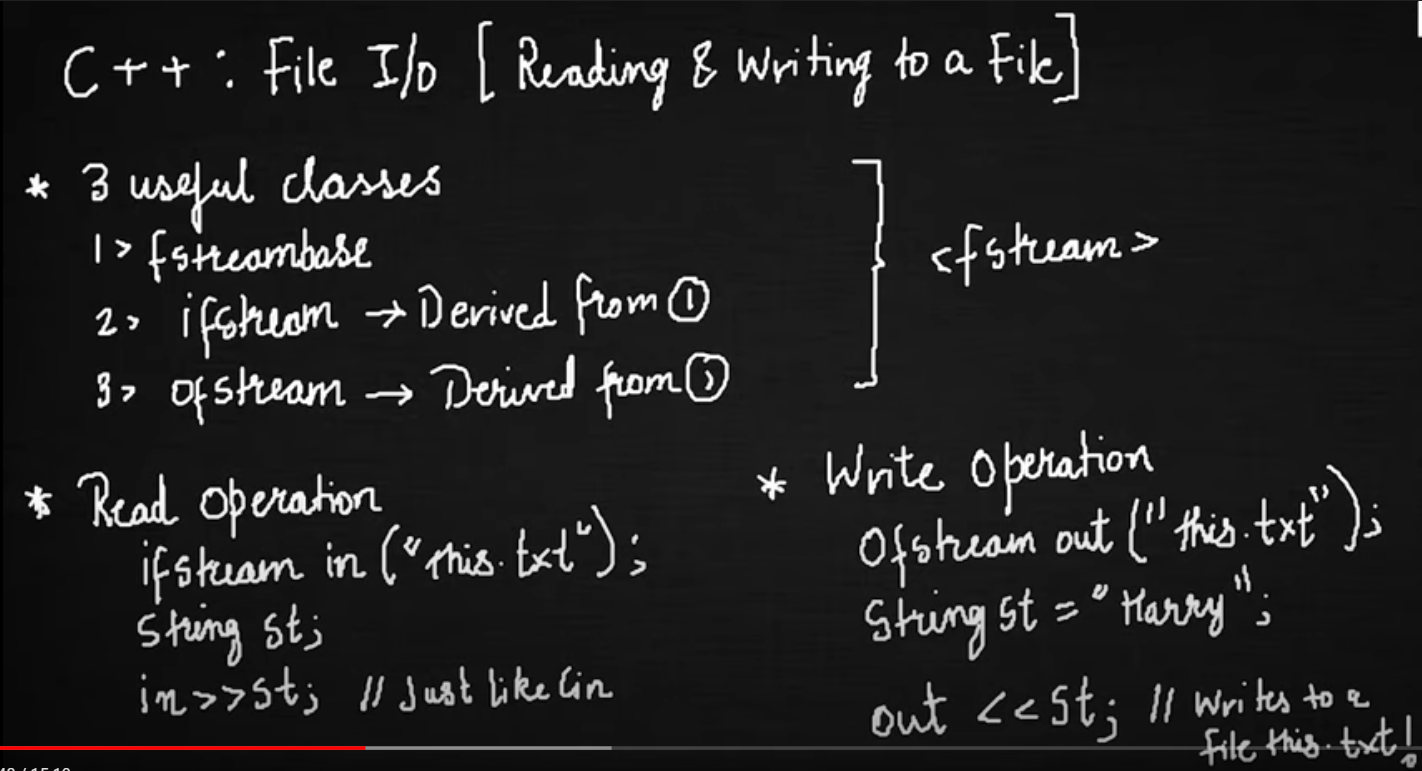 C++ : File I/O [Reading & Writing to a File]
* 3 useful classes
1> fstreambase
2> ifstream → Derived from ①
3> ofstream → Derived from ①
<fstream>
* Read operation
ifstream in ("this.txt");
string st;
in>>st; // Just like Cin
* Write operation
Ofstream out ("this.txt");
String st = "Harry";
out <<st; // Writes to a
file this.txt!